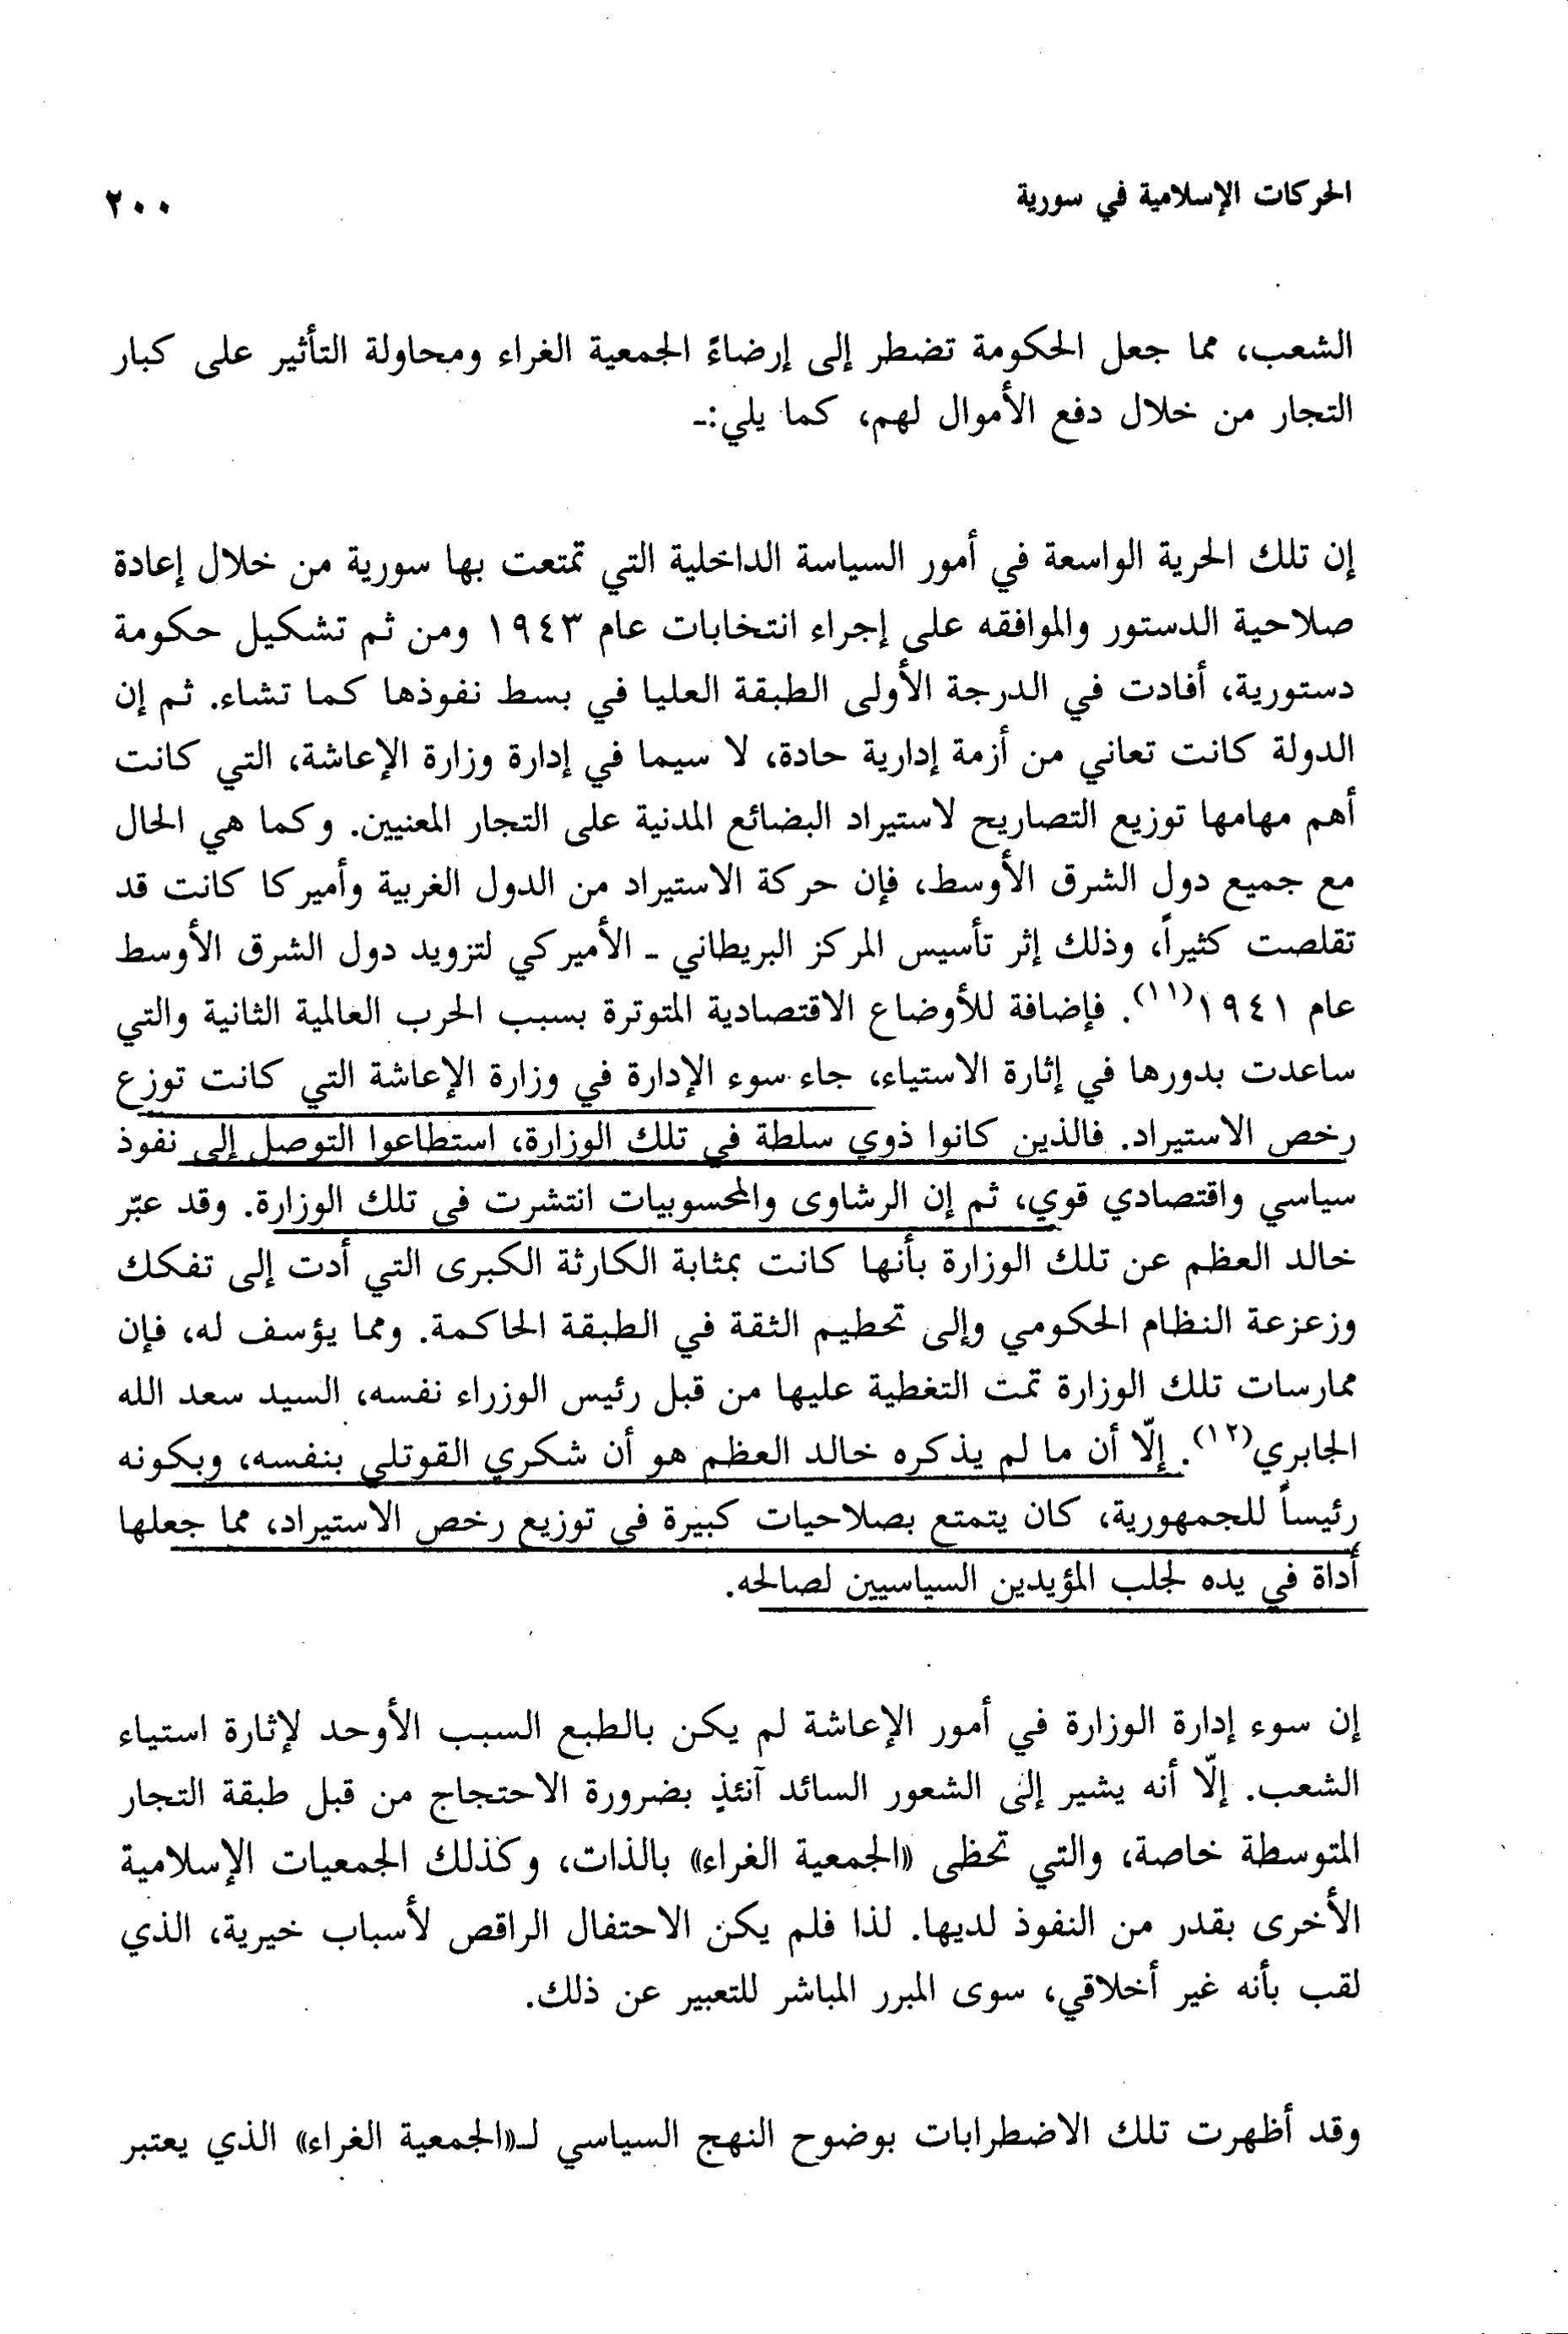 الحركات الإسلامية في سورية ٢٠٠
الشعب، مما جعل الحكومة تضطر إلى إرضاءً الجمعية الغراء ومحاولة التأثير على كبار
التجار من خلال دفع الأموال لهم، كما يلي:ـ
إن تلك الحرية الواسعة في أمور السياسة الداخلية التي تمتعت بها سورية من خلال إعادة
صلاحية الدستور والموافقه على إجراء انتخابات عام ١٩٤٣ ومن ثم تشكيل حكومة
دستورية، أفادت في الدرجة الأولى الطبقة العليا في بسط نفوذها كما تشاء. ثم إن
الدولة كانت تعاني من أزمة إدارية حادة، لا سيما في إدارة وزارة الإعاشة، التي كانت
أهم مهامها توزيع التصاريح لاستيراد البضائع المدنية على التجار المعنيين. وكما هي الحال
مع جميع دول الشرق الأوسط، فإن حركة الاستيراد من الدول الغربية وأميركا كانت قد
تقلصت كثيراً، وذلك إثر تأسيس المركز البريطاني ـ الأميركي لتزويد دول الشرق الأوسط
عام ١٩٤١(١١). فإضافة للأوضاع الاقتصادية المتوترة بسبب الحرب العالمية الثانية والتي
ساعدت بدورها في إثارة الاستياء، جاء سوء الإدارة في وزارة الإعاشة التي كانت توزع
رخص الاستيراد. فالذين كانوا ذوي سلطة في تلك الوزارة، استطاعوا التوصل إلى نفوذ
سياسي واقتصادي قوي، ثم إن الرشاوى والمحسوبيات انتشرت في تلك الوزارة. وقد عبّر
خالد العظم عن تلك الوزارة بأنها كانت بمثابة الكارثة الكبرى التي أدت إلى تفكك
وزعزعة النظام الحكومي وإلى تحطيم الثقة في الطبقة الحاكمة. ومما يؤسف له، فإن
ممارسات تلك الوزارة تمت التغطية عليها من قبل رئيس الوزراء نفسه، السيد سعد الله
الجابري(١٢). إلّا أن ما لم يذكره خالد العظم هو أن شكري القوتلي بنفسه، وبكونه
رئيساً للجمهورية، كان يتمتع بصلاحيات كبيرة في توزيع رخص الاستيراد، مما جعلها
أداة في يده لجلب المؤيدين السياسيين لصالحه.
إن سوء إدارة الوزارة في أمور الإعاشة لم يكن بالطبع السبب الأوحد لإثارة استياء
الشعب. إلّا أنه يشير إلى الشعور السائد آنئذٍ بضرورة الاحتجاج من قبل طبقة التجار
المتوسطة خاصة، والتي تحظى «الجمعية الغراء» بالذات، وكذلك الجمعيات الإسلامية
الأخرى بقدر من النفوذ لديها. لذا فلم يكن الاحتفال الراقص لأسباب خيرية، الذي
لقب بأنه غير أخلاقي، سوى المبرر المباشر للتعبير عن ذلك.
وقد أظهرت تلك الاضطرابات بوضوح النهج السياسي لـ«الجمعية الغراء» الذي يعتبر